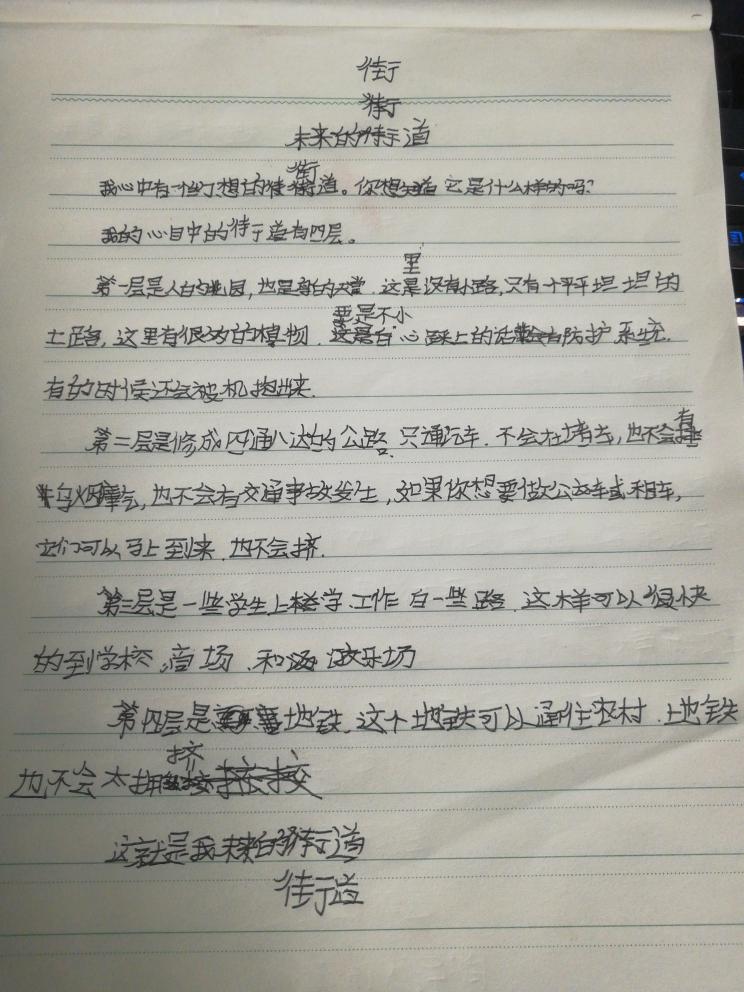 街
街
未来的街道
街
我心中有一个想的街道。你想知道它是什么样的吗?
我的心目中的街道有四层。
里
第一层是人的地园,也是鸟的天堂.这是没有水路,只有十平平坦坦的
要是不小
土路,这里有很多的植物.心踩上的话就会有防护系统.
有的时候还会被机抱出来.
第二层是修成四通八达的公路.只通汽车.不会在堵车,也不会有
乌烟瘴气,也不会有交通事故发生,如果你想要做公交车或租车,
它们可以马上到来.也不会挤.
第三层是一些学生上楼学.工作白一些路.这样可以很快
的到学校.商场.和游乐场
第四层是地铁.这个地铁可以通往农村.地铁
挤
也不会太拥
这就是我未来的街道
街道